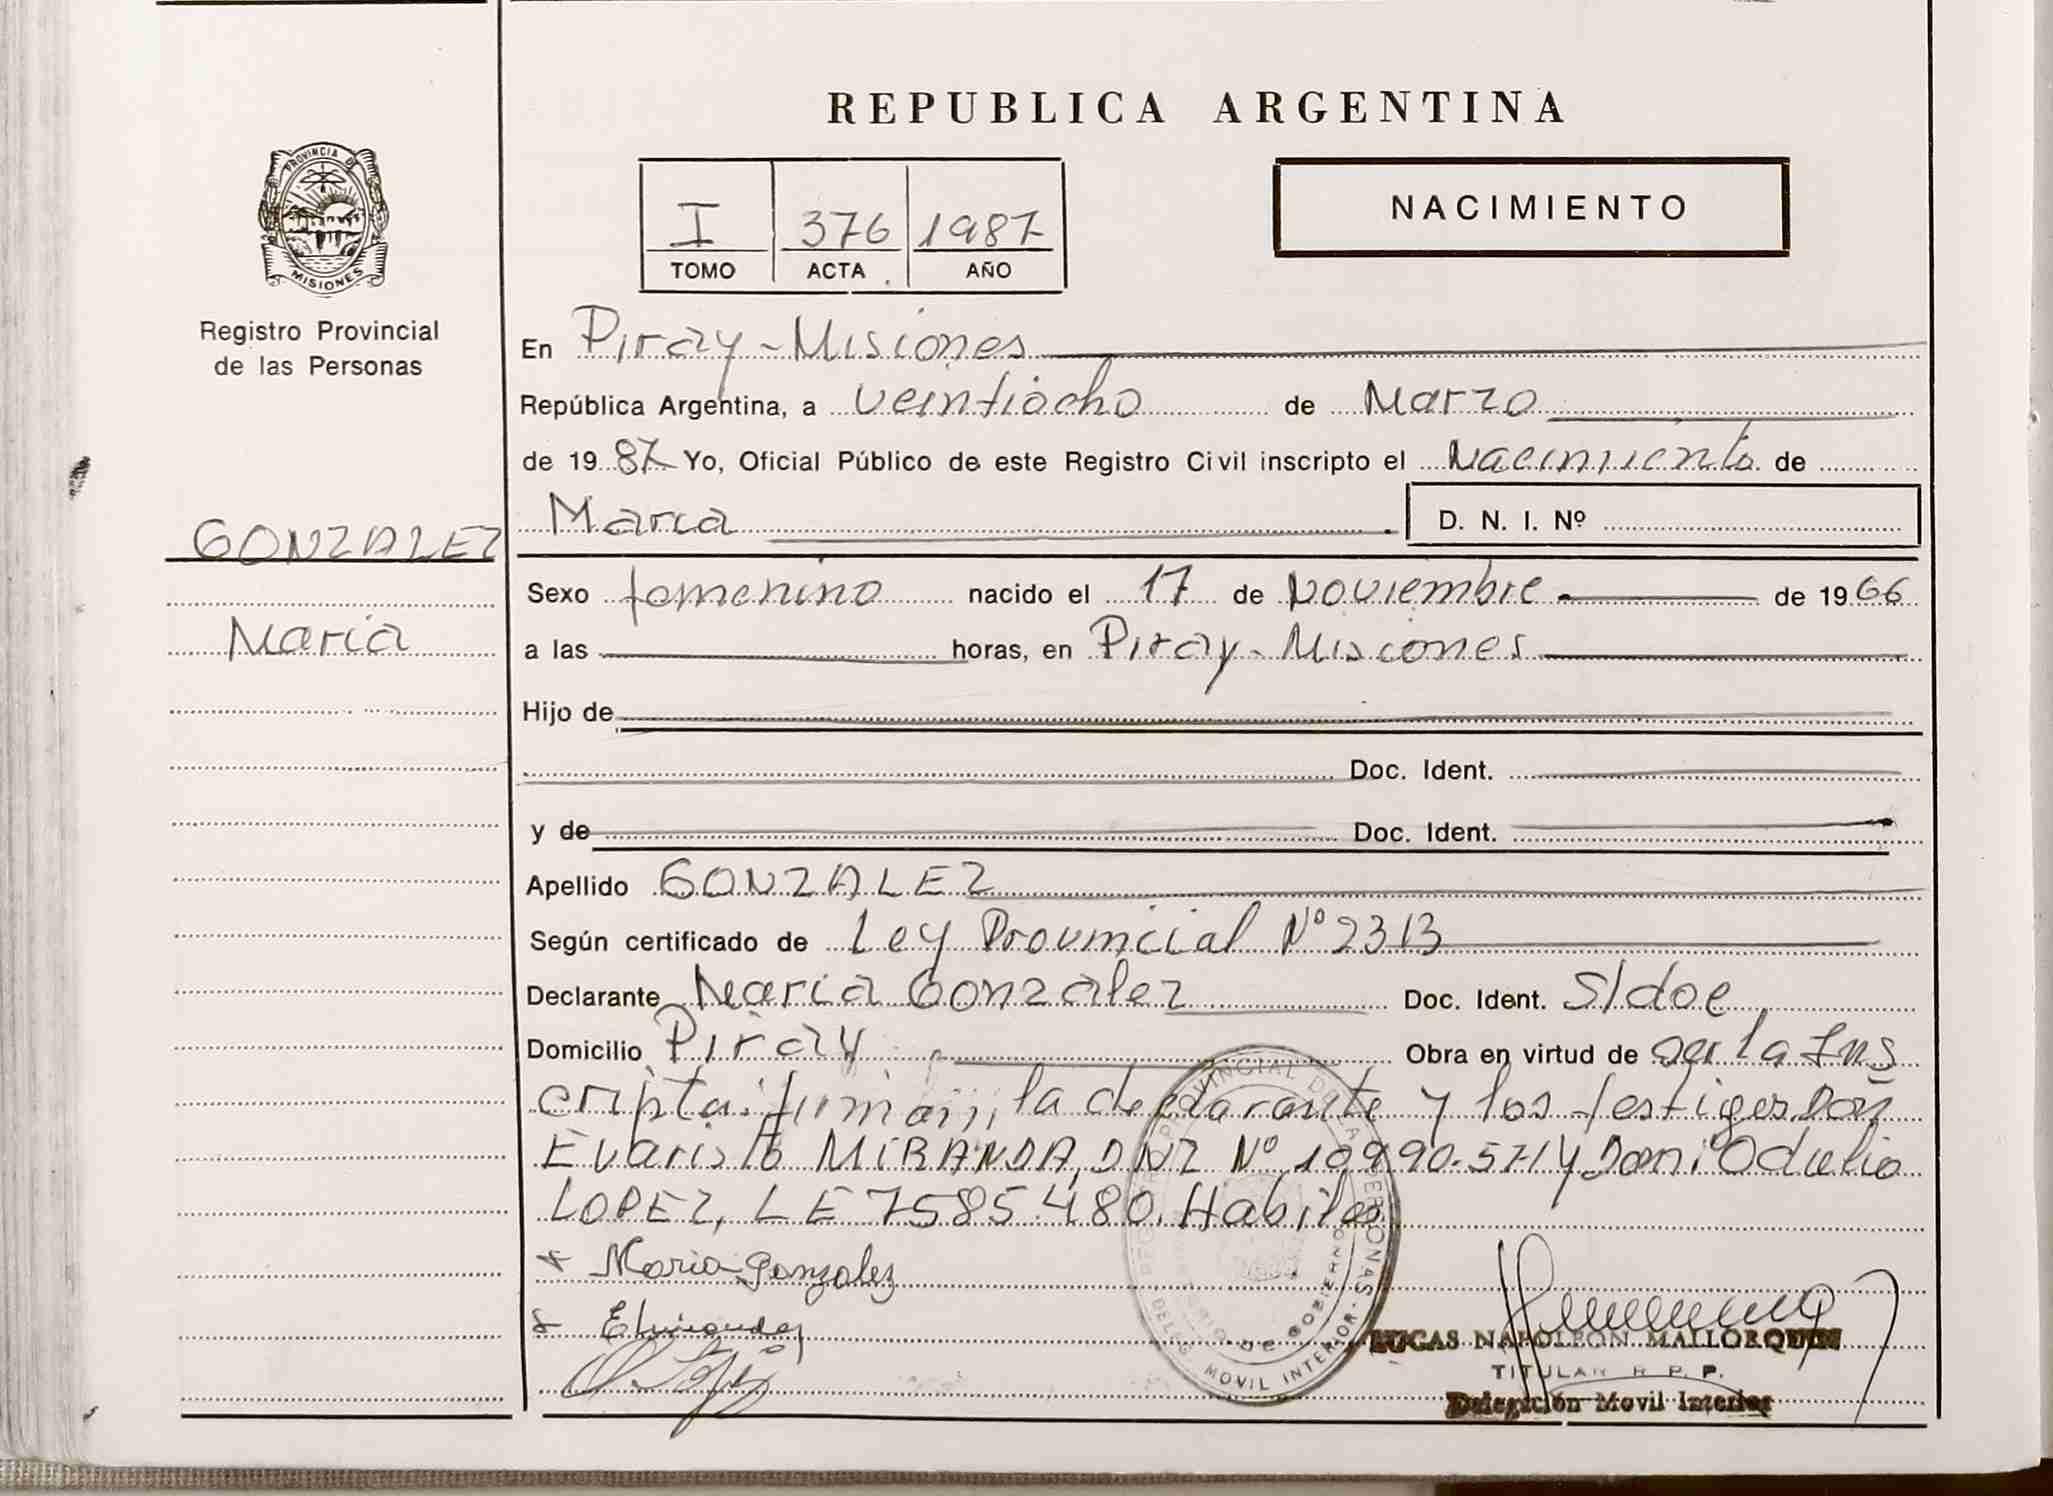 REPUBLICA ARGENTINA
PROVINCIA DE
MISIONES
Registro Provincial
de las Personas
I 376 1987
TOMO ACTA AÑO
NACIMIENTO
En Piray - Misiones
República Argentina, a veintiocho de Marzo
de 19 87 Yo, Oficial Público de este Registro Civil inscripto el Nacimiento de
Maria D. N. I. Nº
GONZALEZ
Maria
Sexo femenino nacido el 17 de Noviembre de 19 66
a las horas, en Piray - Misiones
Hijo de
Doc. Ident.
y de Doc. Ident.
Apellido GONZALEZ
Según certificado de Ley Provincial Nº 2313
Declarante Maria Gonzalez Doc. Ident. S/doc
Domicilio Piray Obra en virtud de ser la Ins
cripta: firman, la declarante y los testigos Don
Evaristo MIRANDA, DNI Nº 10.990.571 y Don: Odulio
LOPEZ, LE 7585.480. Habiles
Maria Gonzalez
LUCAS NAPOLEON MALLORQUIN
TITULAR R. P. P.
Delegación Movil Interior
REGISTRO PROVINCIAL DE LAS PERSONAS
DE GOBIERNO
DELEG. MOVIL INTERIOR